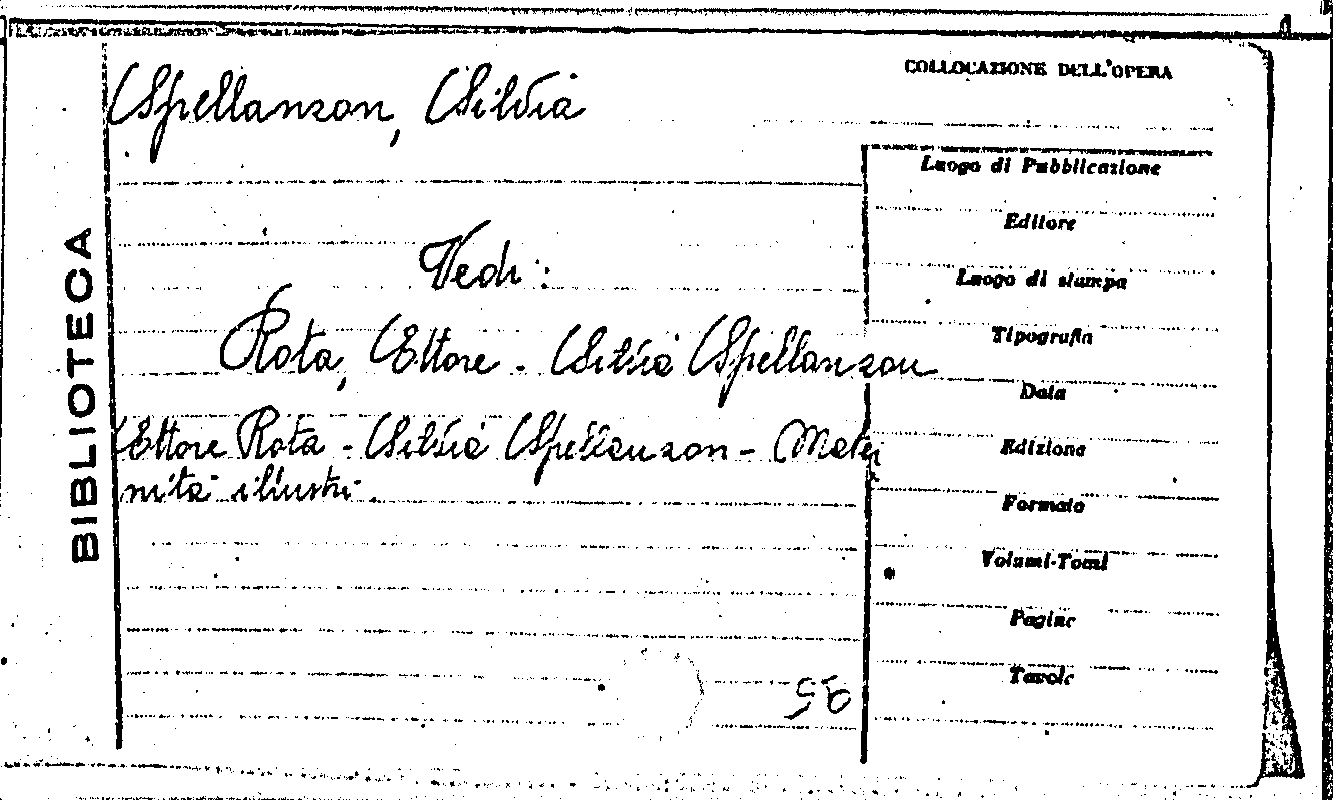 COLLOCAZIONE DELL'OPERA
Spellanzon, Silvia
Vedi:
Rota, Ettore - Silvia Spellanzon
Ettore Rota - Silvia Spellanzon - Mater
nità illustri.
BIBLIOTECA
Luogo di Pubblicazione
Editore
Luogo di stampa
Tipografia
Data
Edizione
Formato
Volumi-Tomi
Pagine
Tavole